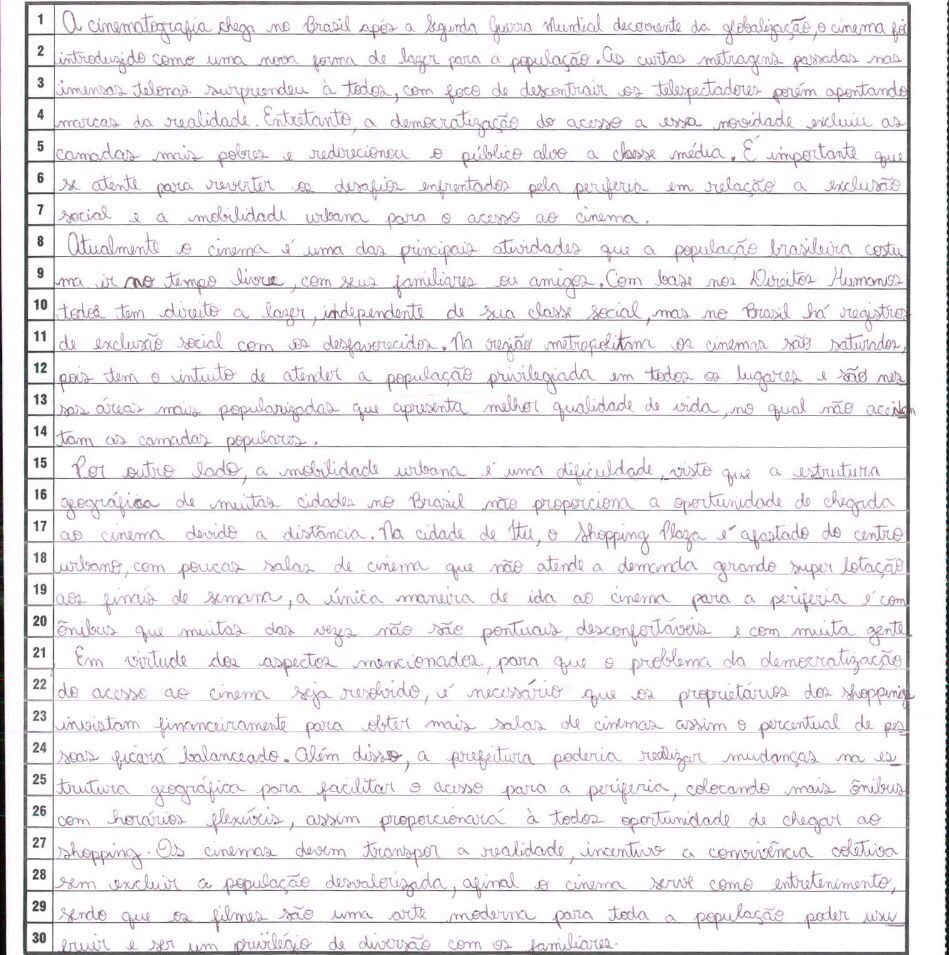 1 A cinematografia chega no Brasil após a Segunda Guerra Mundial decorrente da globalização, o cinema foi
2 introduzido como uma nova forma de lazer para a população. As curtas metragens passadas nas
3 imensas telonas surpreendeu à todos, com foco de descontrair os telespectadores porém apontando
4 marcas da realidade. Entretanto, a democratização do acesso a essa novidade excluiu as
5 camadas mais pobres e redirecionou o público alvo a classe média. É importante que
6 se atente para reverter os desafios enfrentados pela periferia em relação a exclusão
7 social e a mobilidade urbana para o acesso ao cinema.
8 Atualmente o cinema é uma das principais atividades que a população brasileira costu
9 ma ir no tempo livre, com seus familiares ou amigos. Com base nos Direitos Humanos
10 todos tem direito a lazer, independente de sua classe social, mas no Brasil há registros
11 de exclusão social com os desfavorecidos. Na região metropolitana os cinemas são saturados,
12 pois tem o intuito de atender a população privilegiada em todos os lugares e são nes
13 sas áreas mais popularizadas que apresenta melhor qualidade de vida, no qual não acei
14 tam as camadas populares.
15 Por outro lado, a mobilidade urbana é uma dificuldade, visto que a estrutura
16 geográfica de muitas cidades no Brasil não proporciona a oportunidade de chegada
17 ao cinema devido a distância. Na cidade de Itu, o Shopping Plaza é afastado do centro
18 urbano, com poucas salas de cinema que não atende a demanda gerando super lotação
19 aos finais de semana, a única maneira de ida ao cinema para a periferia é com
20 ônibus que muitas das vezes não são pontuais, desconfortáveis e com muita gente
21 Em virtude dos aspectos mencionados, para que o problema da democratização
22 do acesso ao cinema seja resolvido, é necessário que os proprietários dos shoppings
23 invistam financeiramente para obter mais salas de cinemas assim o percentual de pes
24 soas ficará balanceado. Além disso, a prefeitura poderia realizar mudanças na es
25 trutura geográfica para facilitar o acesso para a periferia, colocando mais ônibus
26 com horários flexíveis, assim proporcionará à todos oportunidade de chegar ao
27 shopping. Os cinemas devem transpor a realidade, incentivo a convivência coletiva
28 sem excluir a população desvalorizada, afinal o cinema serve como entretenimento,
29 sendo que os filmes são uma arte moderna para toda a população poder usu
30 fruir e ser um privilégio de diversão com os familiares.